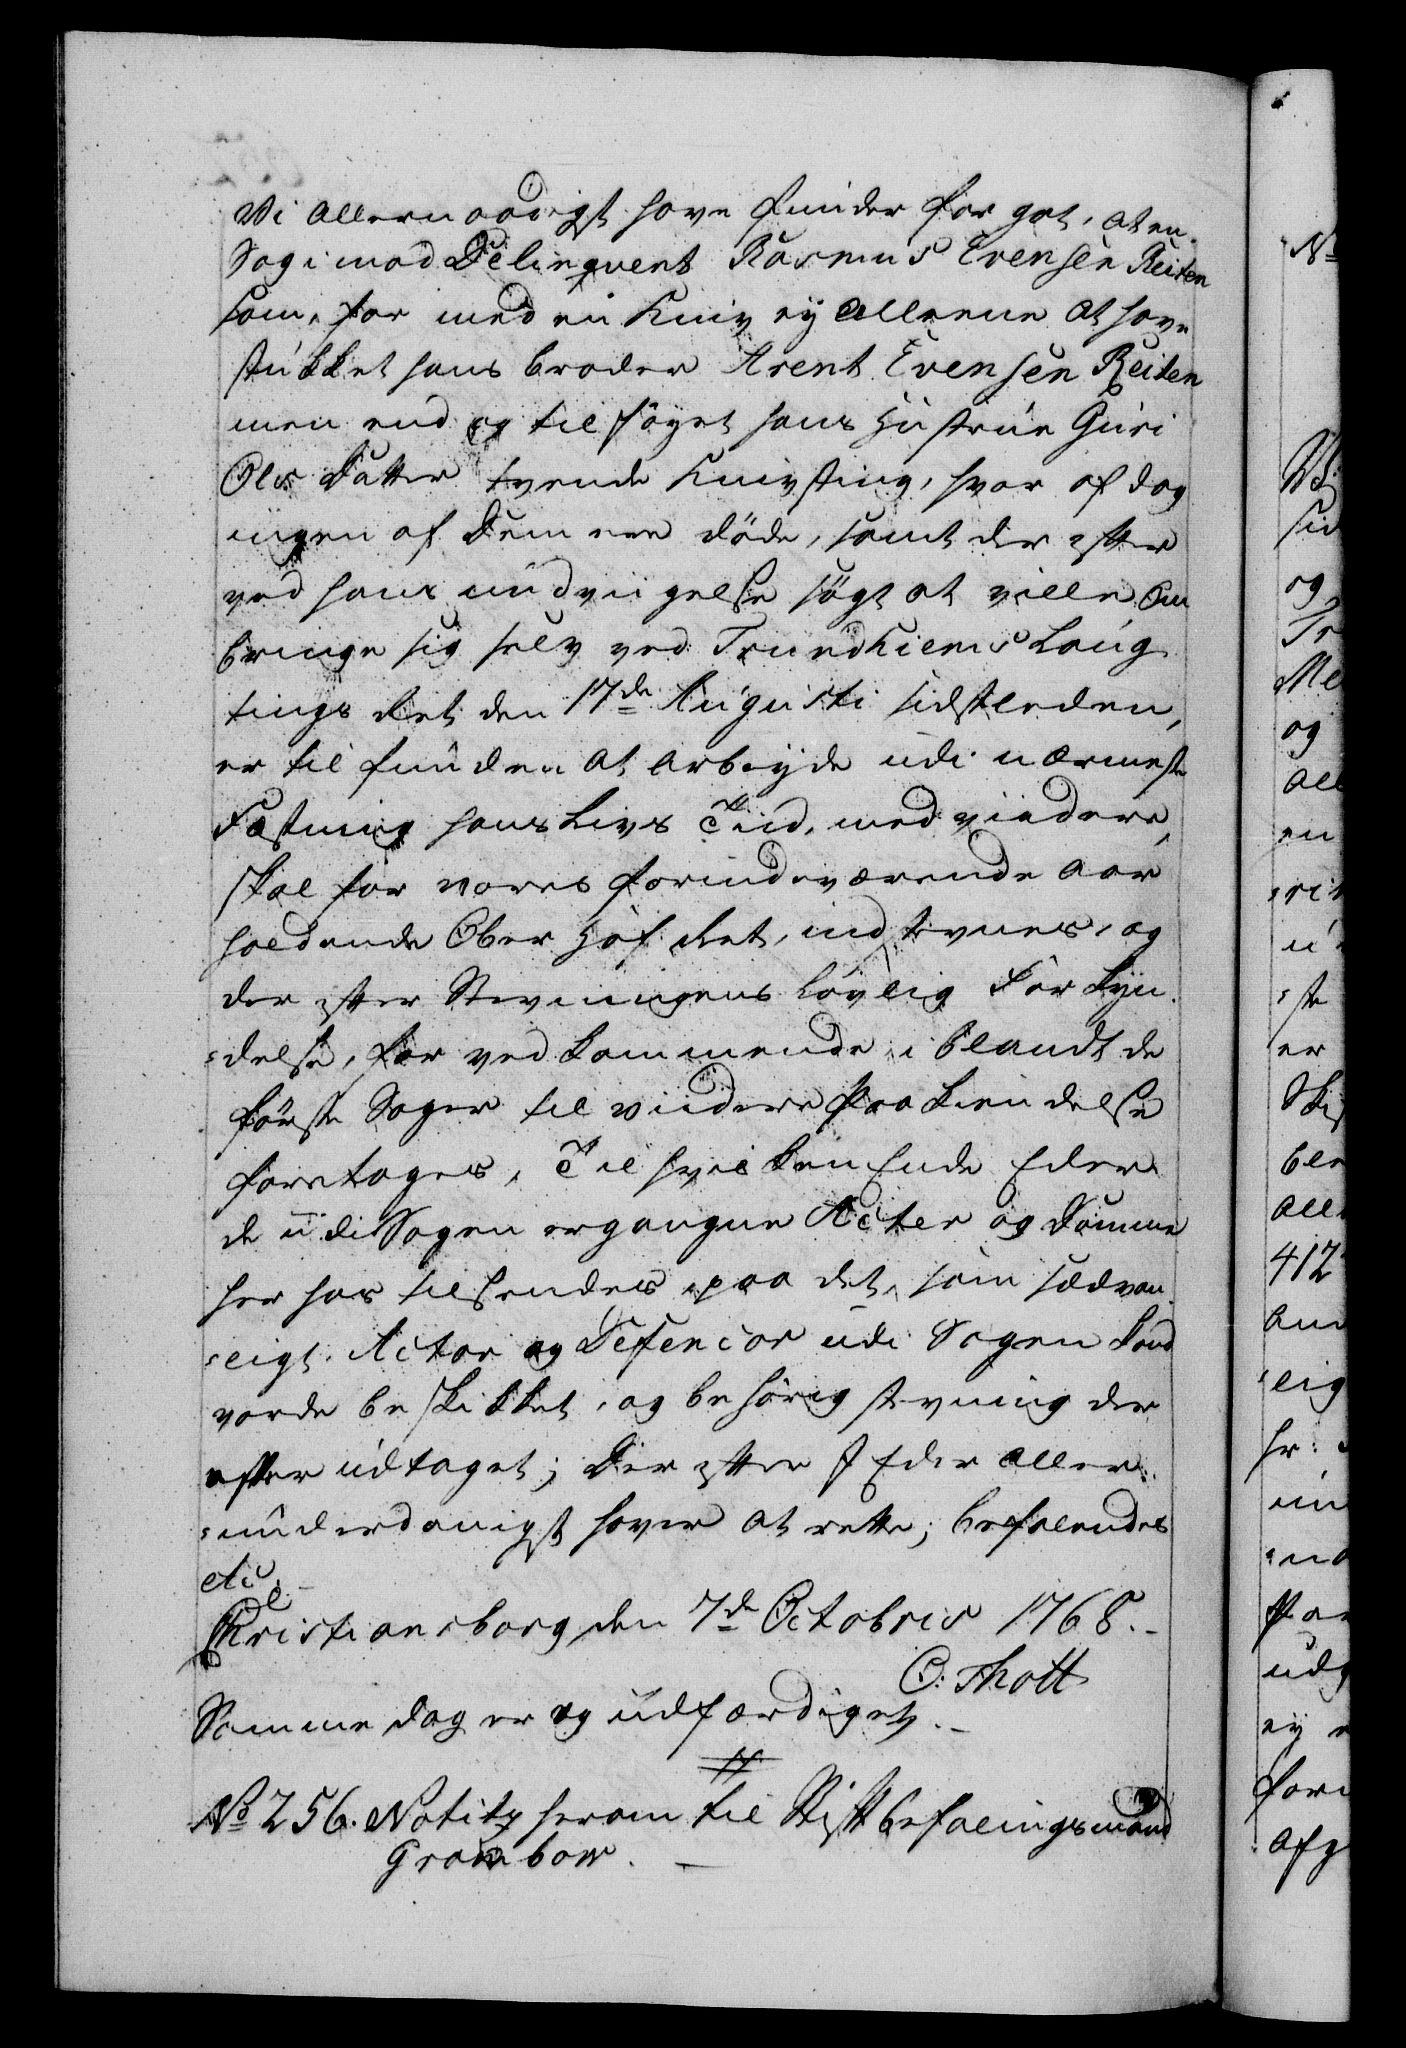 Vi allernaadigst have funden for got, at en
Sag imod Delinqvent Rasmus Evensen Reiten
som, for med en Kniv ey alleene at have
stukket hans broder Arent Evensen Reiten
men end og tilføyet hans Hustrue Guri
Ols Datter tvende Knivsting, hvor af dog
ingen af dem ere døde, samt der efter
ved hans undvigelse søgt at ville om
bringe sig selv ved Trundhiems Laug
tings Ret den 17de Augusti sidstleden,
er til funden at arbeyde udi nærmeste
Fæstning hans Livs Tiid, med viidere,
skal for vores forindeværende Aar
holdende Ober Hof Ret, ind stevnes, og
der efter Stevningens Lovlig Forkyn-
=delse, for vedkommende iblandt de
første Sager til viidere Paakiendelse
foretages, Til hvilken Ende Eder
de udi Sagen ergangne Acter og Domme
her hos tilsendes, paa det, som sædvan-
=ligt, Actor og Defensor udi Sagen kand
vorde beskikket, og behørig stevning der
efter udtaget; Der efter I Eder aller-
=underdanigst haver at rette; befalendes
etc.
Christiansborg den 7de Octobris 1768.-
O: Thott
Samme dag er og udfærdiget.-
No 256. Notitz herom til Stiftbefalingsmand
Grambow.
No
og
Me
og
en
er
412
ey